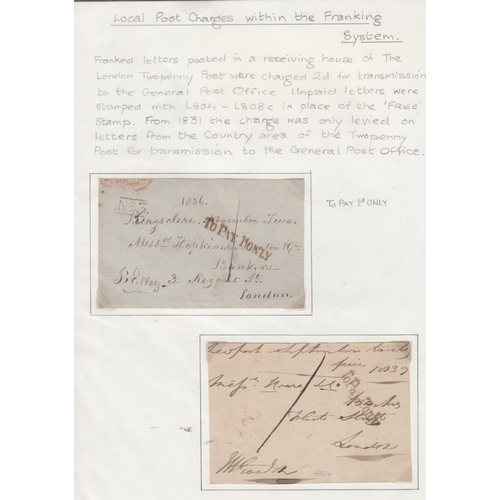 Local Post Charges within the Franking
System.
Franked letters posted in a receiving house of The
London Twopenny Post were charged 2d for transmission
to the General Post Office. Unpaid letters were
stamped with L804 - L808c in place of the 'FREE'
Stamp. From 1831 the charge was only levied on
letters from the Country area of the Twopenny
Post for transmission to the General Post Office.
TO PAY 1d ONLY
1836.
Kingsclere. November
TO PAY 1d ONLY
Messrs Hopkinson
Bankers
3. Regent St.
London
Newport September twenty
five 1832
Messrs
Street
London